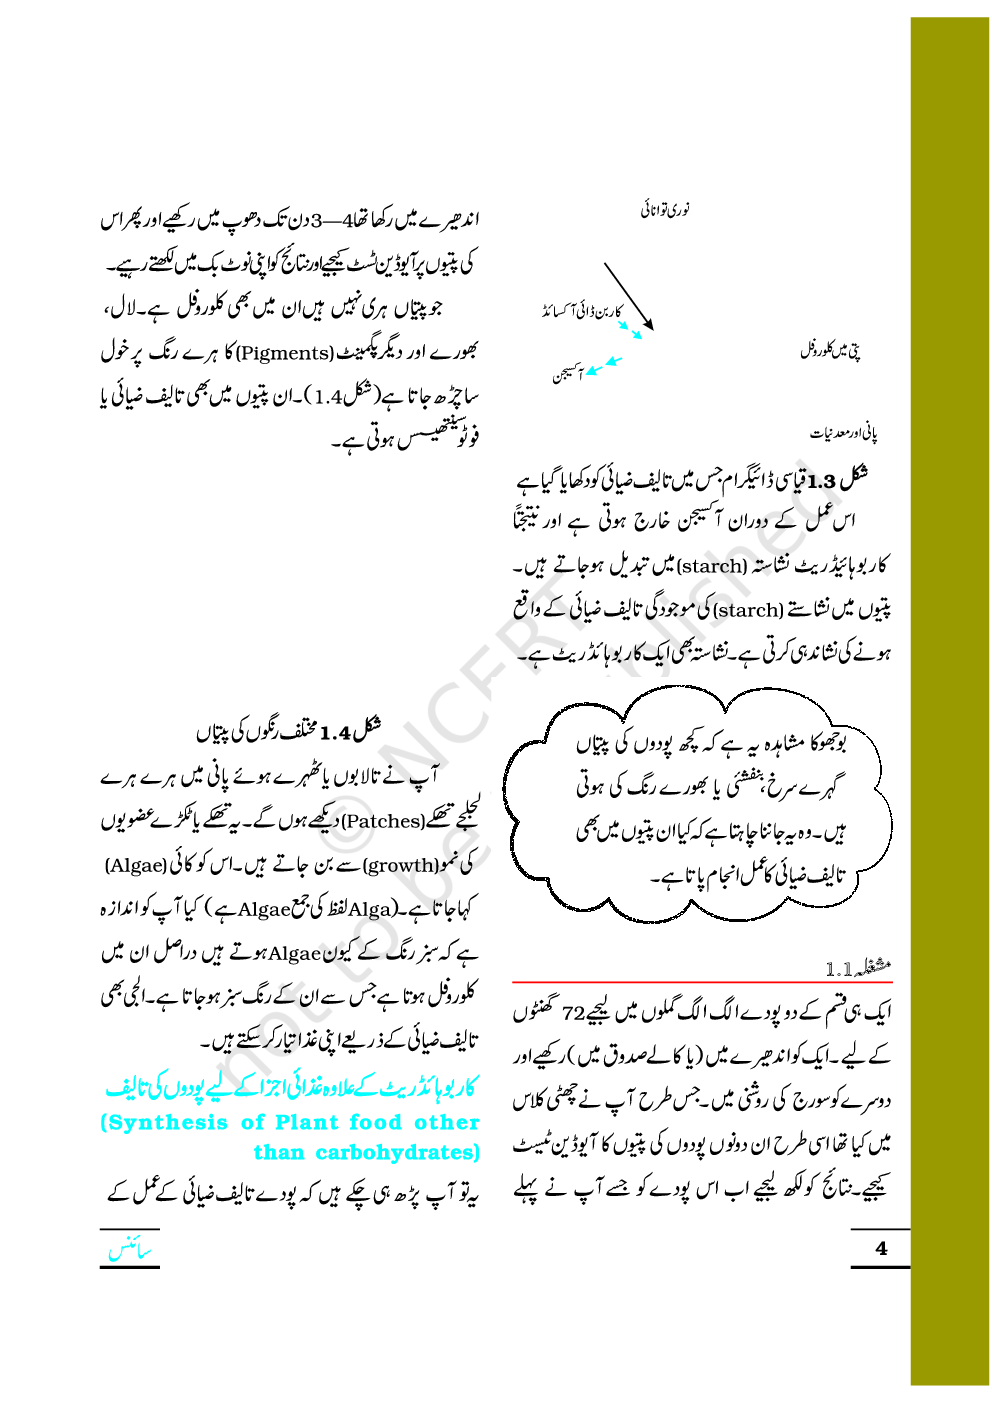 نوری توانائی
کاربن ڈائی آکسائڈ
پتی میں کلوروفل
آکسیجن
پانی اور معدنیات
شکل 1.3 قیاسی ڈائیگرام جس میں تالیف ضیائی کو دکھایا گیا ہے
اس عمل کے دوران آکسیجن خارج ہوتی ہے اور نتیجتاً
کاربوہائیڈریٹ نشاستہ (starch) میں تبدیل ہوجاتے ہیں۔
پتیوں میں نشاستے (starch) کی موجودگی تالیف ضیائی کے واقع
ہونے کی نشاندہی کرتی ہے۔ نشاستہ بھی ایک کاربوہائڈریٹ ہے۔
بوجھو کا مشاہدہ یہ ہے کہ کچھ پودوں کی پتیاں
گہرے سرخ، بنفشئی یا بھورے رنگ کی ہوتی
ہیں۔ وہ یہ جاننا چاہتا ہے کہ کیا ان پتیوں میں بھی
تالیف ضیائی کا عمل انجام پاتا ہے۔
مشغلہ 1.1
ایک ہی قسم کے دو پودے الگ الگ گملوں میں لیجیے 72 گھنٹوں
کے لیے۔ ایک کو اندھیرے میں (یا کالے صدوق میں) رکھیے اور
دوسرے کو سورج کی روشنی میں۔ جس طرح آپ نے چھٹی کلاس
میں کیا تھا اسی طرح ان دونوں پودوں کی پتیوں کا آیوڈین ٹیسٹ
کیجیے۔ نتائج کو لکھ لیجیے اب اس پودے کو جسے آپ نے پہلے
اندھیرے میں رکھا تھا 4—3 دن تک دھوپ میں رکھیے اور پھر اس
کی پتیوں پر آیوڈین ٹسٹ کیجیے اور نتائج کو اپنی نوٹ بک میں لکھتے رہیے۔
جو پتیاں ہری نہیں ہیں ان میں بھی کلوروفل ہے۔ لال،
بھورے اور دیگر پگمینٹ (Pigments) کا ہرے رنگ پر خول
سا چڑھ جاتا ہے (شکل 1.4)۔ ان پتیوں میں بھی تالیف ضیائی یا
فوٹو سینتھیسس ہوتی ہے۔
شکل 1.4 مختلف رنگوں کی پیتاں
آپ نے تالابوں یا ٹھہرے ہوئے پانی میں ہرے ہرے
لجلجے تھکے (Patches) دیکھے ہوں گے۔ یہ تھکے یا ٹکڑے عضویوں
کی نمو (growth) سے بن جاتے ہیں۔ اس کو کائی (Algae)
کہا جاتا ہے۔ (Alga لفظ کی جمع Algae ہے) کیا آپ کو اندازہ
ہے کہ سبز رنگ کے کیون Algae ہوتے ہیں دراصل ان میں
کلوروفل ہوتا ہے جس سے ان کے رنگ سبز ہوجاتا ہے۔ الجی بھی
تالیف ضیائی کے ذریعے اپنی غذا تیار کرسکتے ہیں۔
کاربوہائڈریٹ کے علاوہ غذائی اجزا کے لیے پودوں کی تالیف
(Synthesis of Plant food other
than carbohydrates)
یہ تو آپ پڑھ ہی چکے ہیں کہ پودے تالیف ضیائی کے عمل کے
4
سائنس
© NCERT
not to be republished